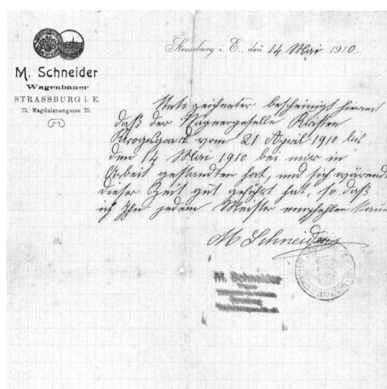 M. Schneider
Wagenbauer
STRASSBURG i. E.
Magdalenengasse
Strassburg i. E., den 14 Mai 1910.
Unterzeichneter bescheinigt hiermit
daß der Wagnergeselle
vom 21 April 1910 bis
den 14 Mai 1910 bei mir in
Arbeit gestanden hat, und sich während
dieser Zeit gut geführt hat. so daß
ich Ihn jedem Meister empfehlen kann
M Schneider
M. Schneider